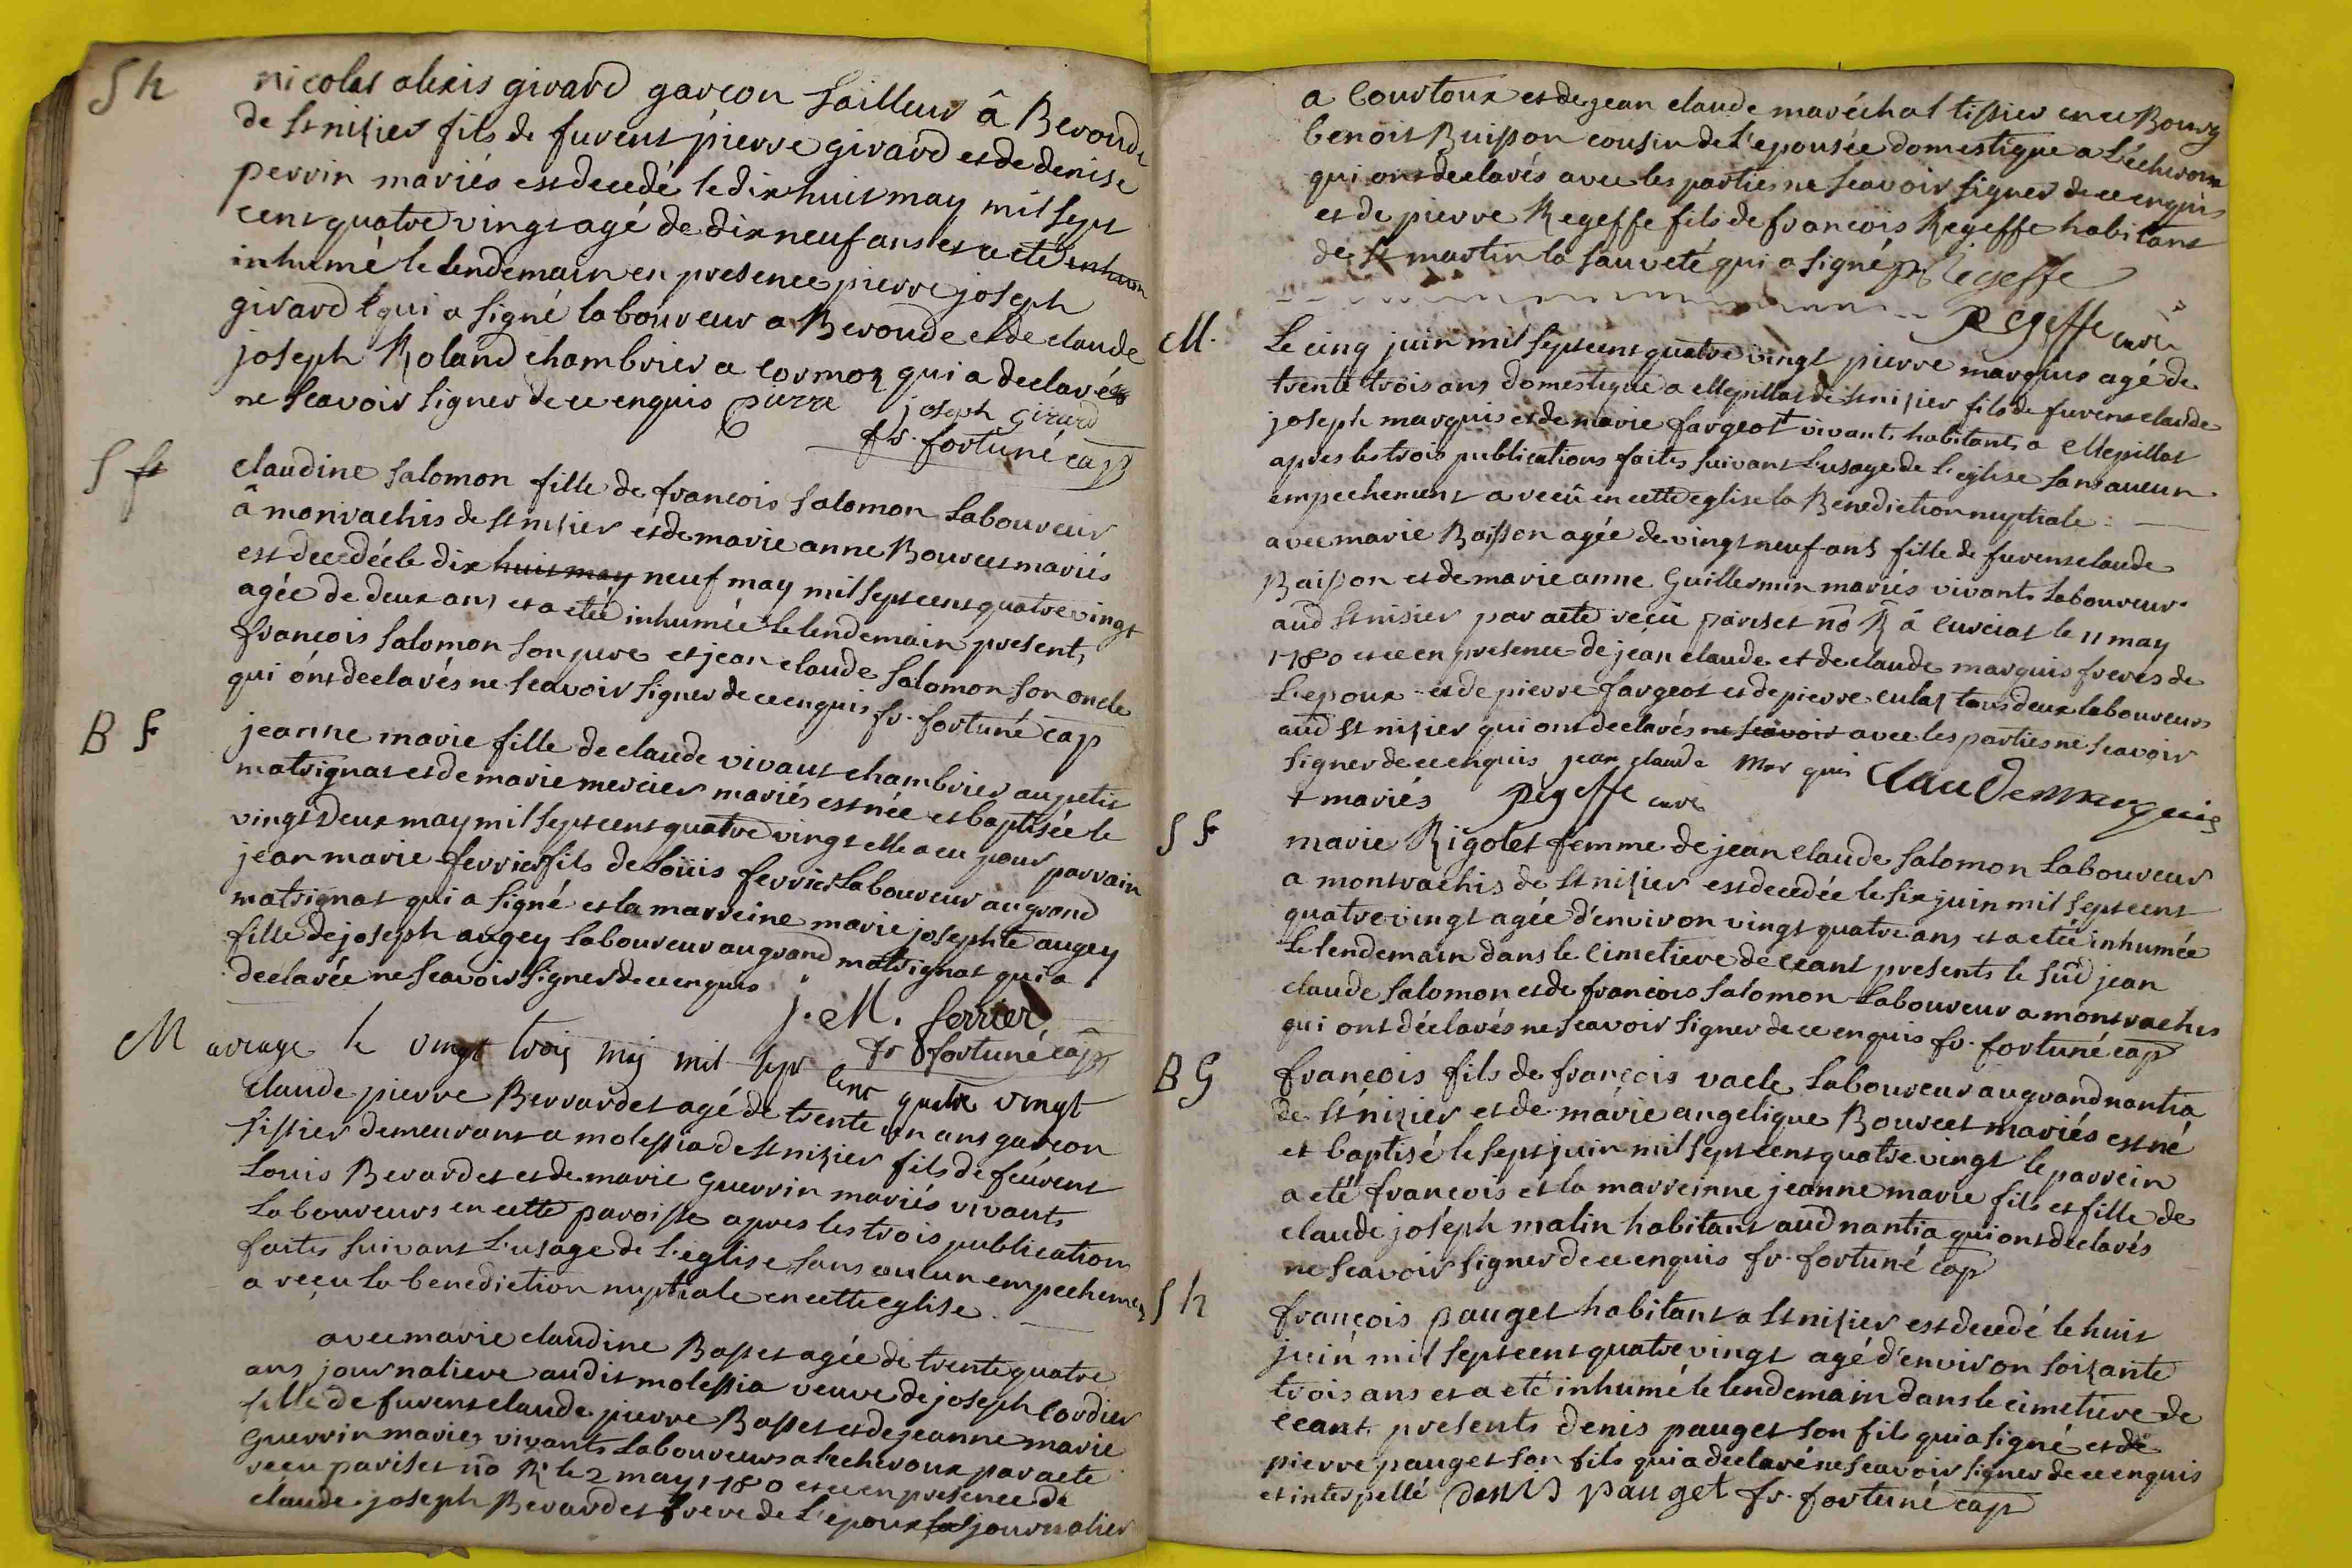 S h nicolas alexis girard garçon tailleur â Beroude
de St nizier fils de furent pierre girard et de denise
perrin mariés est decedé le dix huit may mil sept
cent quatre vingt agé de dix neuf ans et a eté inhum
inhumé le lendemain en presence pierre joseph
girard qui a signé laboureur a Beroude et de claude
joseph Roland chambrier a Cormoz qui a declarés
ne scavoir signer de ce enquis pierre joseph Girard
fr. fortuné cap
S f claudine salomon fille de francois salomon laboureur
â monrachis de st nizier et de marie anne Bourcet mariés
est decedée le dix huit may neuf may mil sept cent quatre vingt
agée de deux ans et a etée inhumée le lendemain present,
francois salomon son pere et jean claude salomon son oncle
qui ont declarés ne scavoir signer de ce enquis fr. fortuné cap
B F jeanne marie fille de claude vivant chambrier au petit
matrignat et de marie mercier mariés est née et baptisée le
vingt deux may mil sept cent quatre vingt elle a eu pour parrain
jean marie ferrier fils de Loüis ferrier Laboureur au grand
matrignat qui a signé et la marreine marie josephte augey
fille de joseph augey laboureur au grand matrignat qui a
declarée ne scavoir signer de ce enquis
j. M. ferrier
fr fortuné cap
M ariage le vingt trois mij mil sept cent quatre vingt
Claude pierre Berrardet agé de trente un ans garçon
tissier demeurant a molessia de st nizier fils de feurent
Louis Berardet et de marie guerrin mariés vivants
laboureurs en cette paroisse apres les trois publication
faites suivant l'usage de l'eglise sans auCun empechemen
a reçu la benediction nuptiale en cette eglise.
avec marie claudine Basset agée de trente quatre
ans journaliere audit molessia veuve de joseph Cordier
fille de furent claude pierre Basset et de jeanne marie
guerrin mariés vivants laboureurs a l'echeroux par acte
recu pariset nō R. le 2 may 1780 et ce en presence de
claude joseph Berardet frere de l'epoux journalier
a Courtoux et de jean claude maréchal tissier en ce Bourg
benoit Buisson cousin de l'epousée domestique a L'écheroux
qui ont declarés avec les parties ne scavoir signer de ce enquis
et de pierre Regeffe fils de francois Regeffe habitant
de st martin la sauveté qui a signé p Regeffe
Regeffe curé
M. Le cinq juin mil sept cent quatre vingt pierre marquis agé de
trente trois ans domestique a Mepillat de st nizier fils de furent claude
joseph marquis et de marie fargeot + vivants habitants a Mepillat
apres les trois publications faites suivant L'usage de L'eglise sans aucun
empechement a reçû en cette eglise la Benediction nuptiale
avec marie Baisson agée de vingt neuf ans fille de furent claude
Baisson et de marie anne Guillermin mariés vivants laboureur.
aud St nisier par acte reçu pariset nō R â Curciat le 11 may
1780 et ce en presence de jean claude et de claude marquis freres de
L'epoux et de pierre fargeot et de pierre culas tous deux laboureurs
aud st nizier qui ont declarés ne scavoir avec les parties ne scavoir
signer de ce enquis jean claude Mar quis Claude marquis
+ mariés Regeffe curé
S F marie Rigolet femme de jean claude salomon Laboureur
a monrachis de St nizier est decedée le six juin mil sept cent
quatre vingt agée d'environ vingt quatre ans et a etée inhumée
Le lendemain dans le Cimetiere de ceant presents le sūd jean
claude salomon et de francois salomon Laboureur a monrachis
qui ont déclarés ne scavoir signer de ce enquis fr. fortuné cap
B G françois fils de françois vacle laboureur au grand nantia
de St nizier et de marie angelique Bourcet mariés est né
et baptisé le sept juin mil sept cent quatre vingt le parrein
a eté francois et la marreinne jeanne marie fils et fille de
claude joseph matin habitant aud nantia qui ont declarés
ne scavoir signer de ce enquis fr. fortuné cap
S h françois pauget habitant a St nizier est decedé le huit
juin mil sept cent quatre vingt agé d'environ soixante
trois ans et a eté inhumé le lendemain dans le cimetiere de
ceant. presents denis pauget son fils qui a signé et de
pierre pauget son fils qui a declaré ne scavoir signer de ce enquis
et interpellé denis pauget fr. fortuné cap